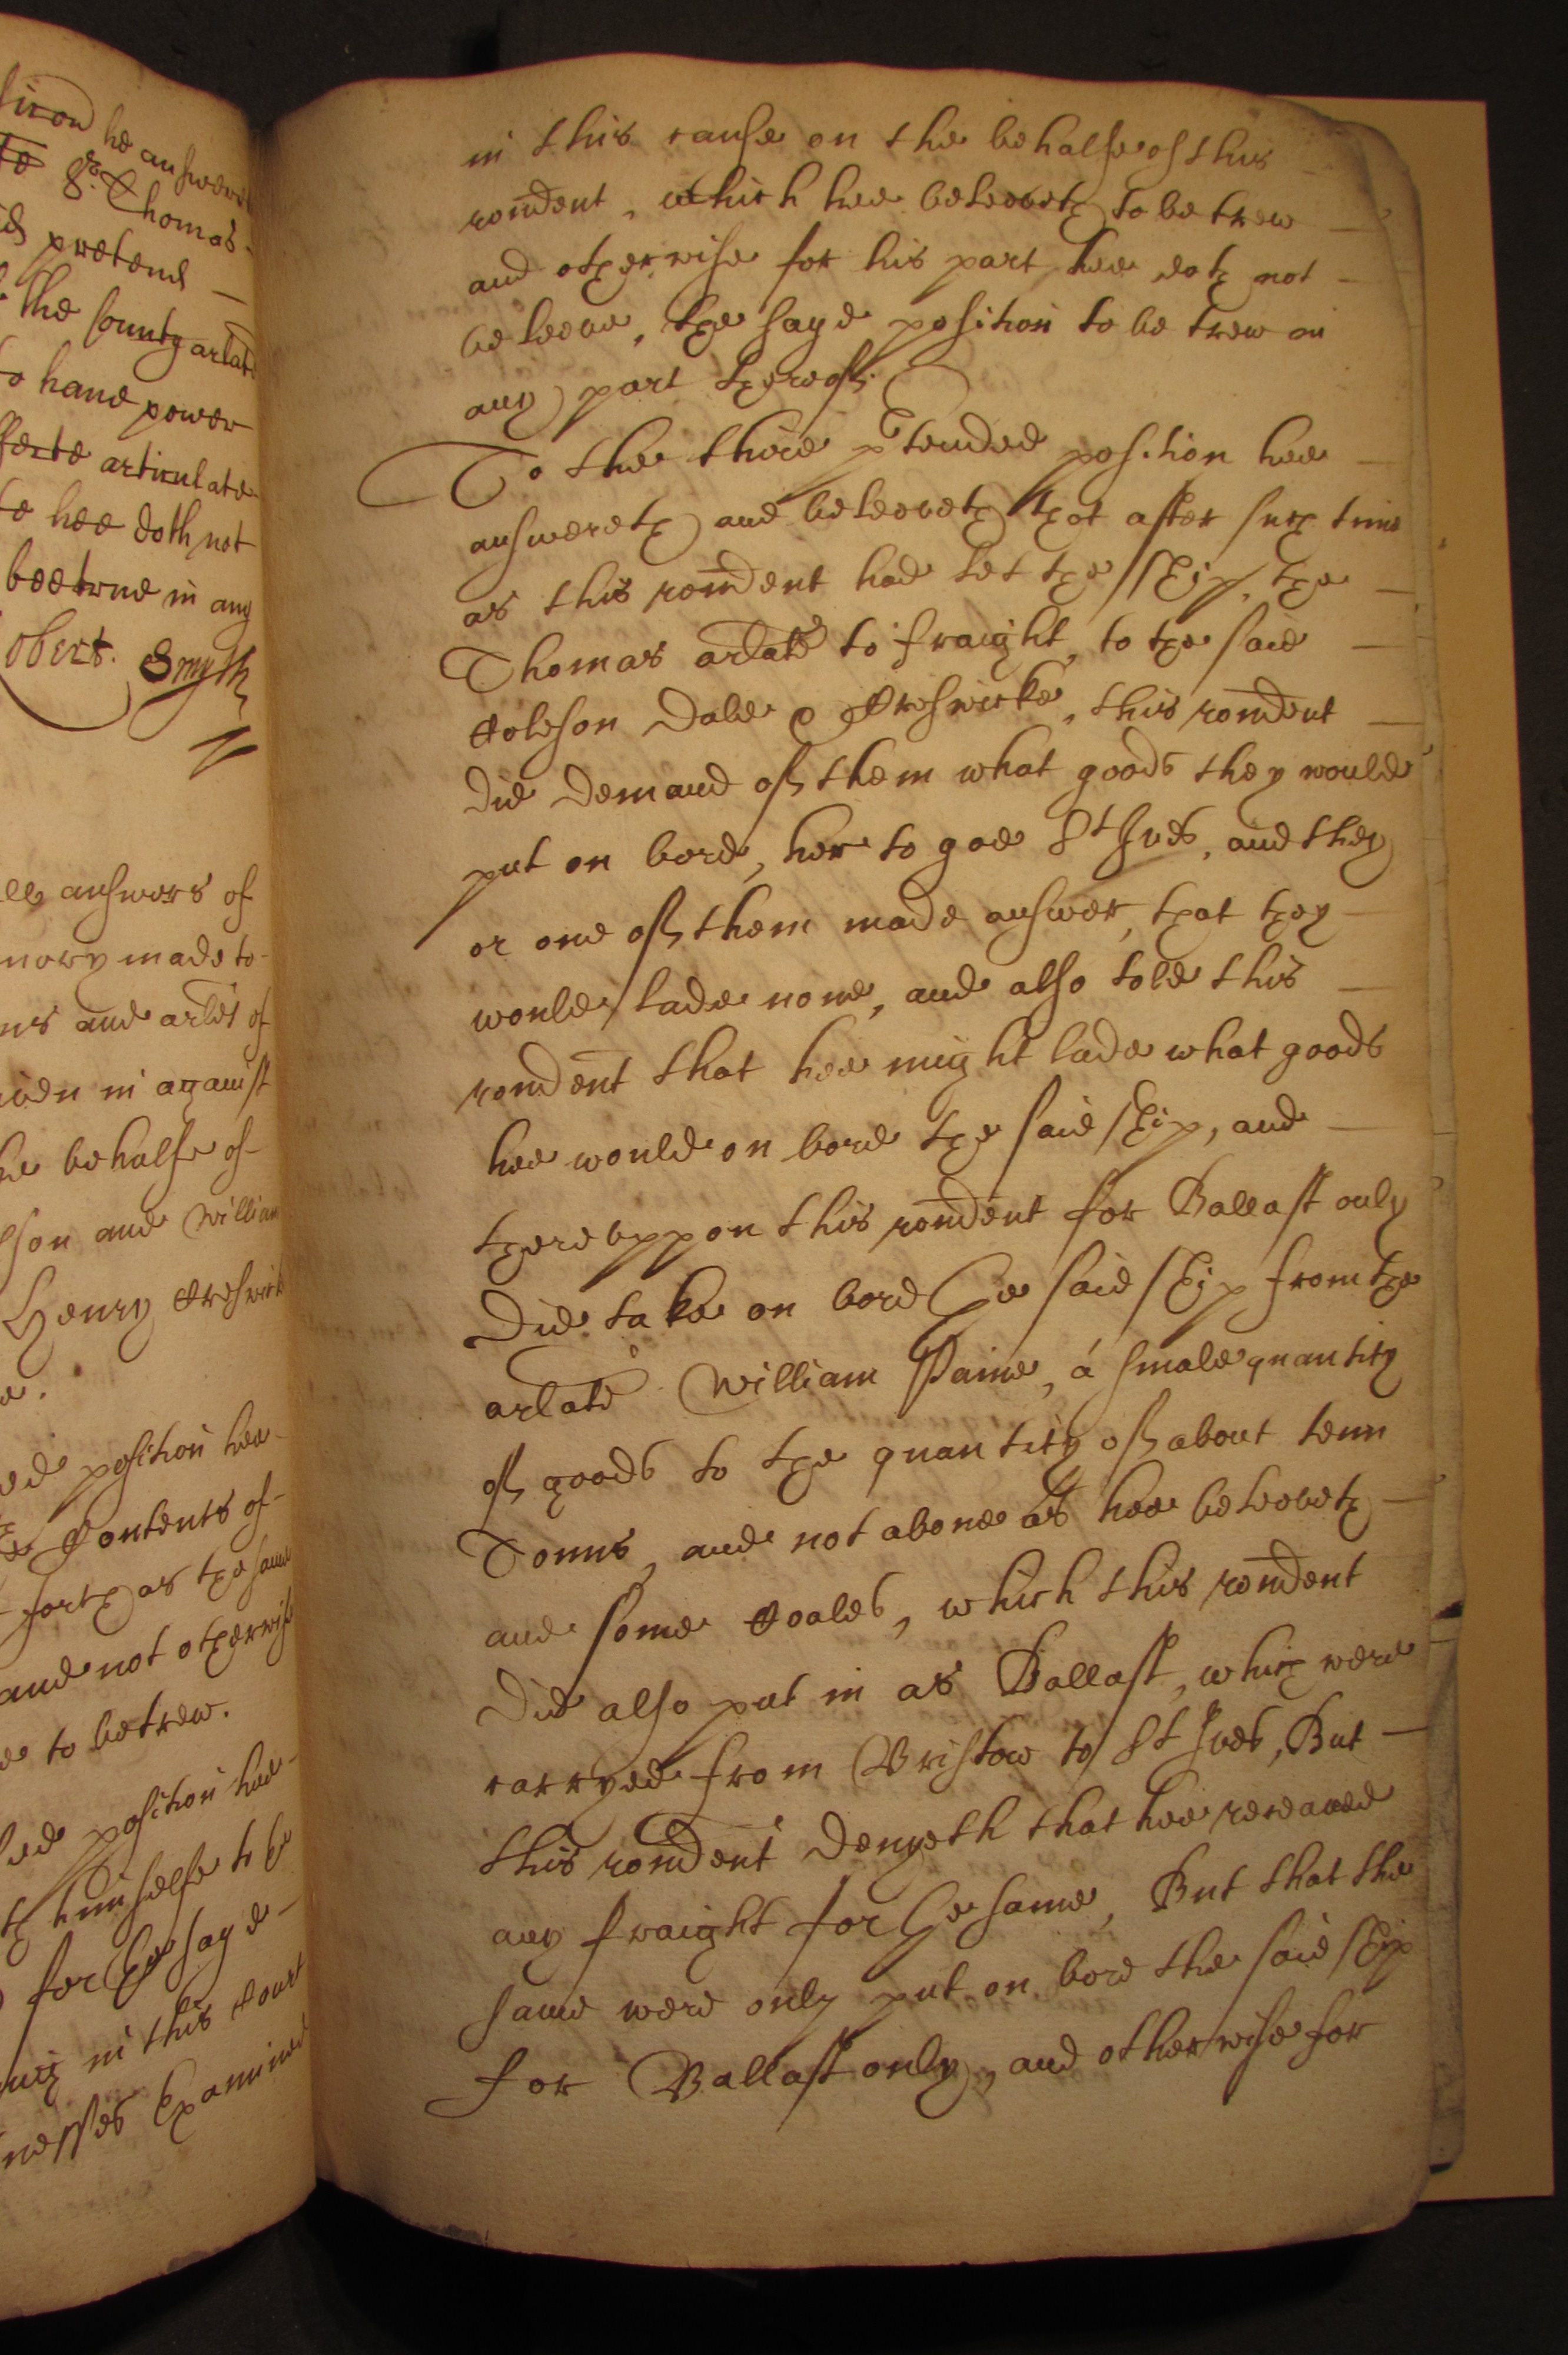 sition he answereth
te St. Thomas
pretend
the County arlate
to have power
articulate
to hee doth not
bee trwe in any
Robert. Smyth
answers of
made to
ns and arlēs of
given in against
he behalfe of
son and William
Henry Creswick
position hee
Contents of
forth as the same
and not otherwise
to be trew.
position hee
himselfe to be
for the sayd
in this Court
nesses Examined
in this cause on the behalfe of this
rondent, which hee beleeveth to be trew
and otherwise for his part hee doth not
beleeve, the sayd position to be trew in
any part thereof.
To the third ptended position hee
answereth and beleeveth that after such time
as this rondent had let the Ship, the
Thomas arlate to fraight, to the said
Coleson Dale & Creswicke, this rondent
did demand of them what goods they would
put on bord, her to goe St Ives, and they
or one of them made answer, that they
would lade none, and also told this
rondent that hee might lade what goods
hee would on bord the said Ship, and
thereuppon this rondent for Ballast only
did take on bord the said Ship from the
arlate William Paine, a smale quantity
of goods to the quantity of about tenn
Tonns, and not above as hee beleeveth
and some Coales, which this rondent
did also put in as Ballast, which were
carryed from Bristow to St Ives, But
this rondent denyeth that hee receaved
any fraight for the same, But that the
same were only put on bord the said Ship
for Ballast only, and otherwise for